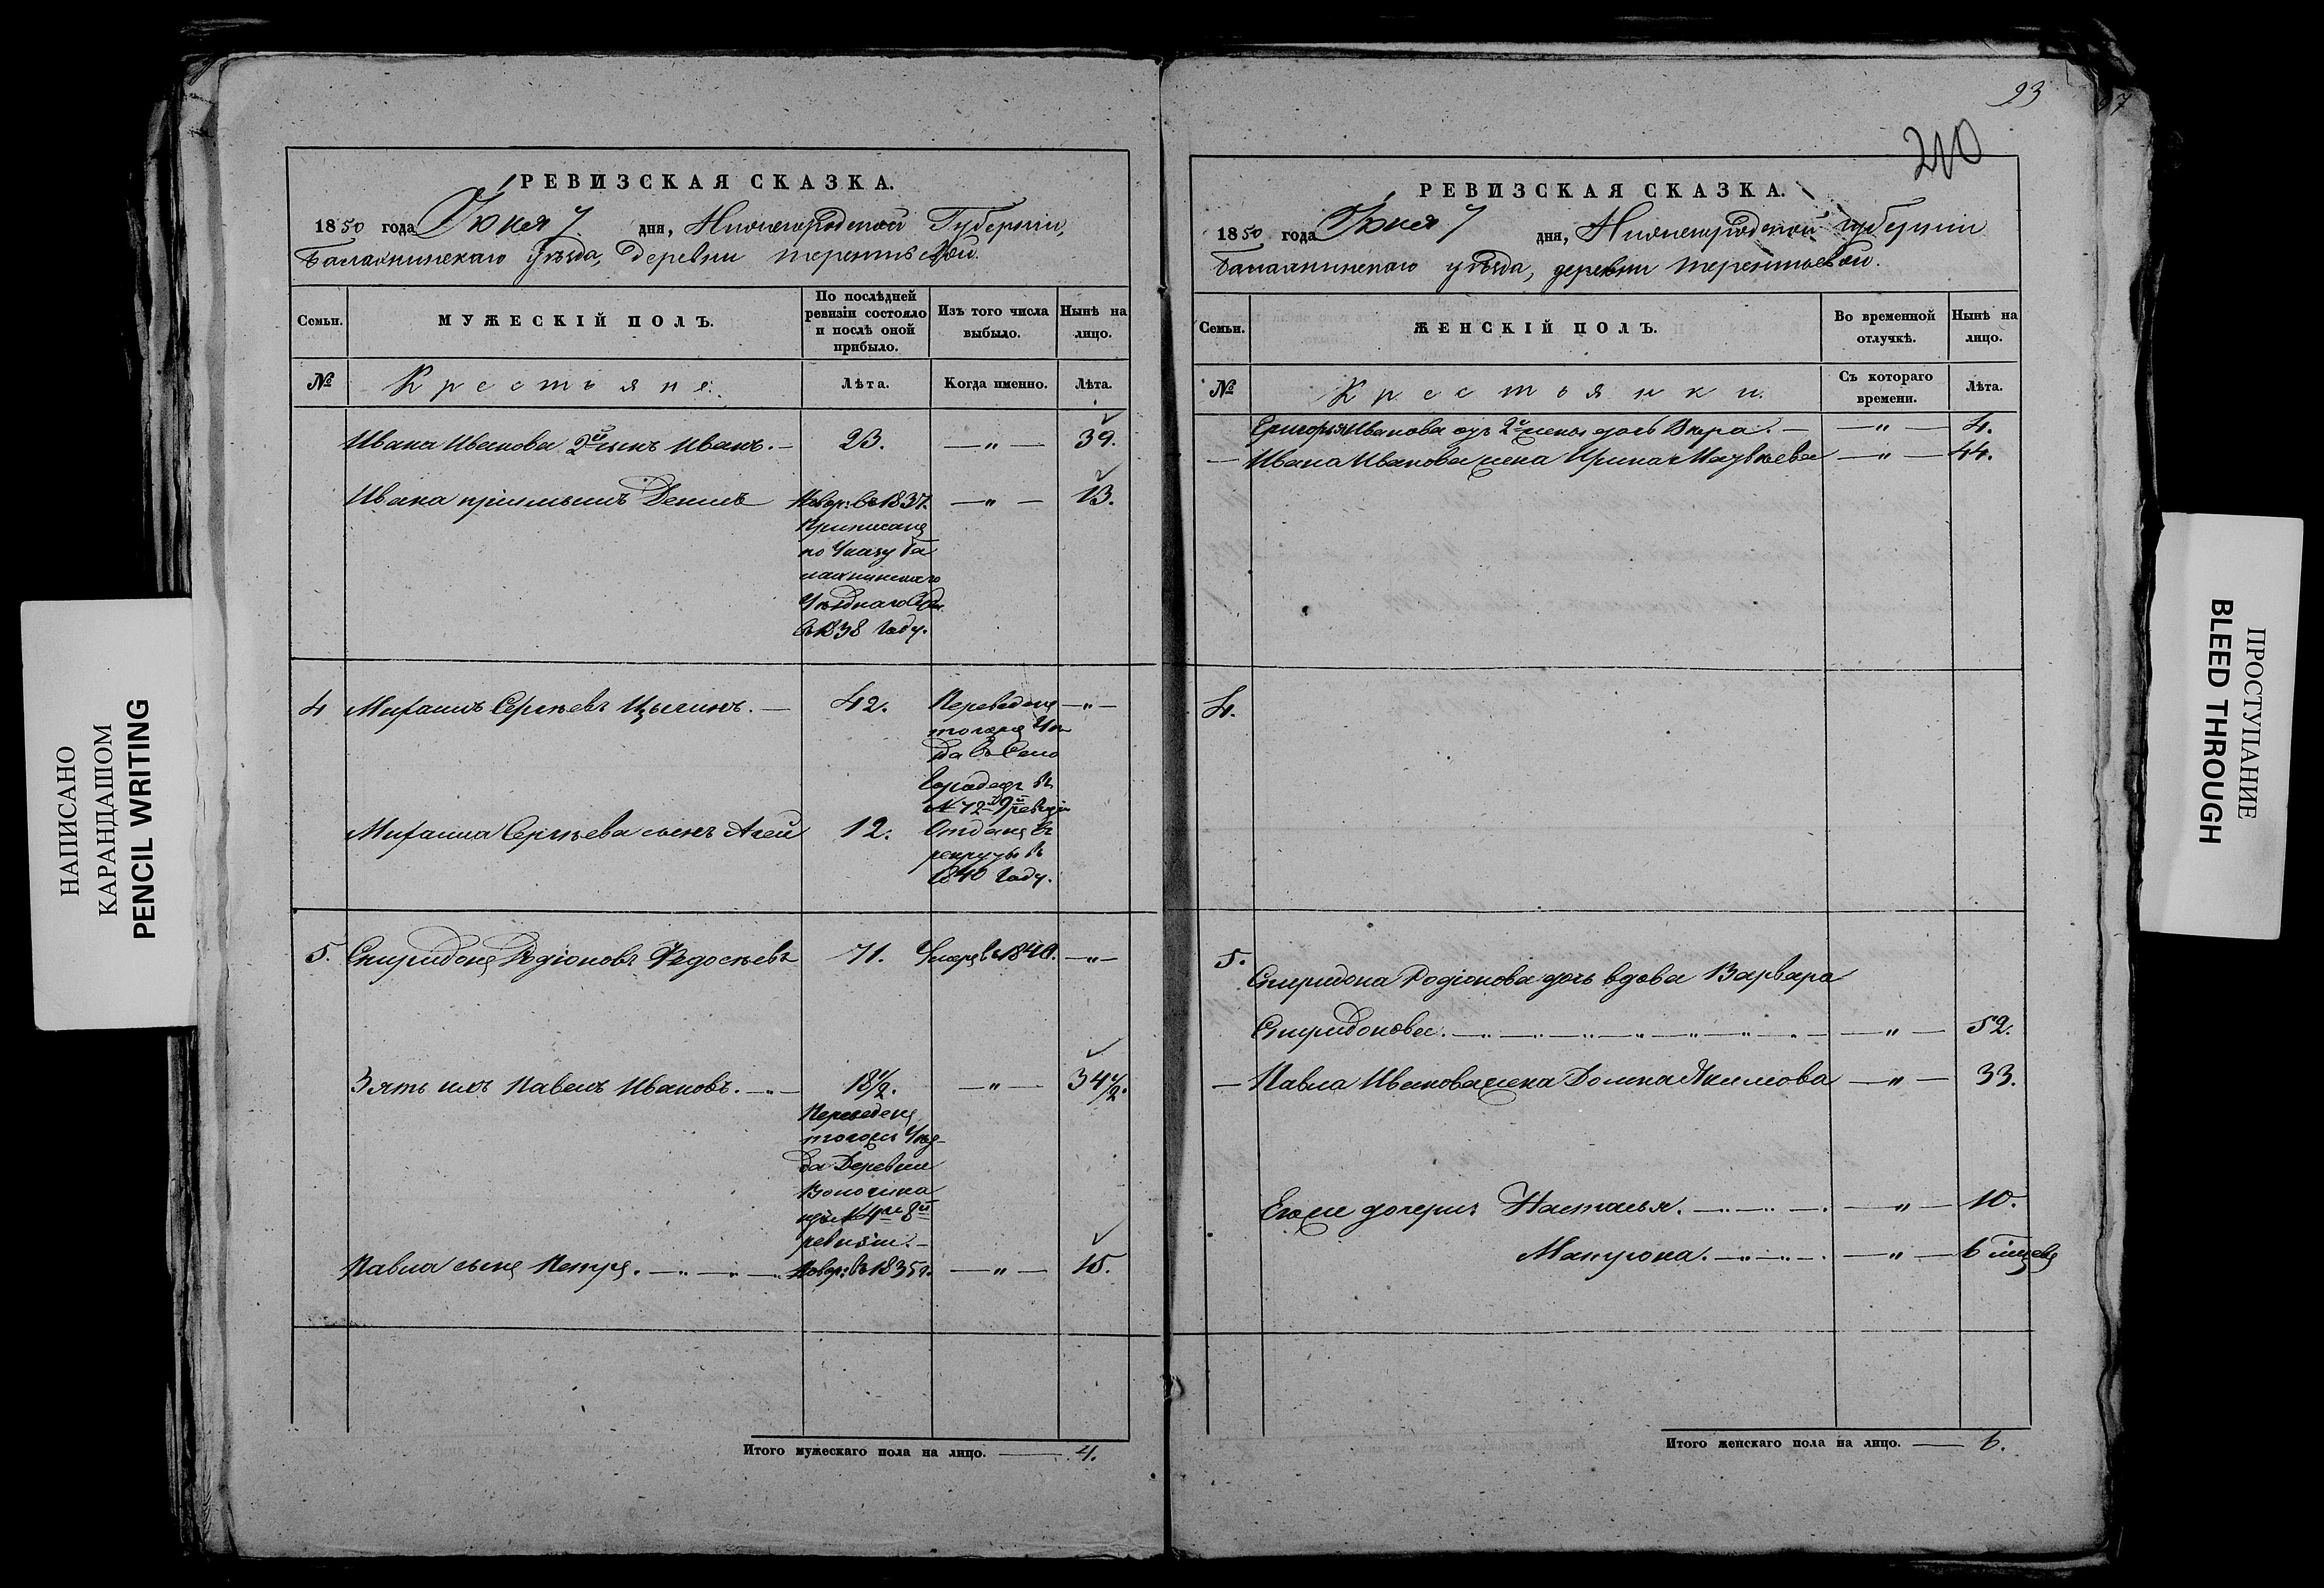 НАПИСАНО
КАРАНДАШОМ
PENCIL WRITING
РЕВИЗСКАЯ СКАЗКА.
1850 года Іюня 7 дня, Нижегородской Губерніи,
Балахнинскаго уѣзда, деревни Терентьевой.
Семьи.
МУЖЕСКІЙ ПОЛЪ.
По послѣдней
ревизіи состояло
и послѣ оной
прибыло.
Изъ того числа
выбыло.
Нынѣ на
лицо.
№
Крестьяне.
Лѣта.
Когда именно.
Лѣта.
Ивана Иванова 2й сынъ Иванъ. — 23. — " — 39.
Ивана пріемышъ Денисъ Новор: въ 1837. — " — 13.
Приписанъ
по Указу Ба
лахнинскаго
Уѣзднаго Суда
въ 1838 Году.
4 Михаилъ Сергѣевъ Цыгинъ. — 42. Переведенъ — " —
тогожъ Уѣз
да въ Село
Городецъ въ
№ 72й 9й ревизіи
Михаила Сергѣева сынъ Агей 12. Отданъ въ
рекруты въ
1840 Году.
5. Спиридонъ Родіоновъ Ѳедосѣевъ 71. Умеръ въ 1840. — " —
Зять ихъ Павелъ Ивановъ. — " — 18½. — " — 34½.
Переведенъ
тогожъ Уѣз
да Деревни
изъ № 4го 8й
ревизіи. —
Павла сынъ Петръ. — " — " — Новор: въ 1835 г. — " — 15.
Итого мужескаго пола на лицо. — 4.
93
97
210
РЕВИЗСКАЯ СКАЗКА.
1850 года Іюня 7 дня, Нижегородской губерніи
Балахнинскаго уѣзда, деревни Терентьевой.
Семьи.
ЖЕНСКІЙ ПОЛЪ.
Во временной
отлучкѣ.
Нынѣ на
лицо.
№
Крестьянки.
Съ котораго
времени.
Лѣта.
Григорья Иванова отъ 2й жены дочь Вѣра. — — " — 4.
— Ивана Иванова жена Ирина Матвѣева — " — 44.
4.
5.
Спиридона Родіонова дочь вдова Варвара
Спиридонова. — " — " — " — " — " — " — 52.
— Павла Иванова жена Домна Якимова — " — 33.
Егоже дочери: Настасья. — " — " — " — 10.
Матрона. — " — " — " — 6 мѣсяцевъ
Итого женскаго пола на лицо. — 6.
ПРОСТУПАНИЕ
BLEED THROUGH